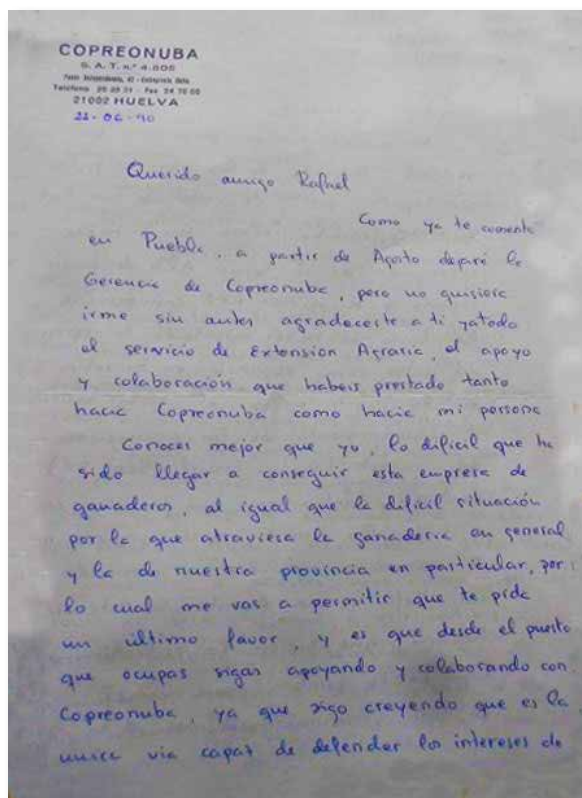 COPREONUBA
S. A. T. n.º 4.806
Teléfono 26 28 31 - Fax 24 70 00
21002 HUELVA
22-06-90
Querido amigo Rafael
Como ya te comenté
en Puebla, a partir de Agosto dejaré la
Gerencia de Copreonuba, pero no quisiera
irme sin antes agradecerte a ti y a todo
el servicio de Extension Agraria, el apoyo
y colaboración que habeis prestado tanto
hacia Copreonuba como hacia mi persona
Conoces mejor que yo, lo dificil que ha
sido llegar a conseguir esta empresa de
ganaderos, al igual que la dificil situación
por la que atraviesa la ganaderia en general
y la de nuestra provincia en particular, por
lo cual me vas a permitir que te pida
un último favor, y es que desde el puesto
que ocupas sigas apoyando y colaborando con
Copreonuba, ya que sigo creyendo que es la
unica via capat de defender los intereses de